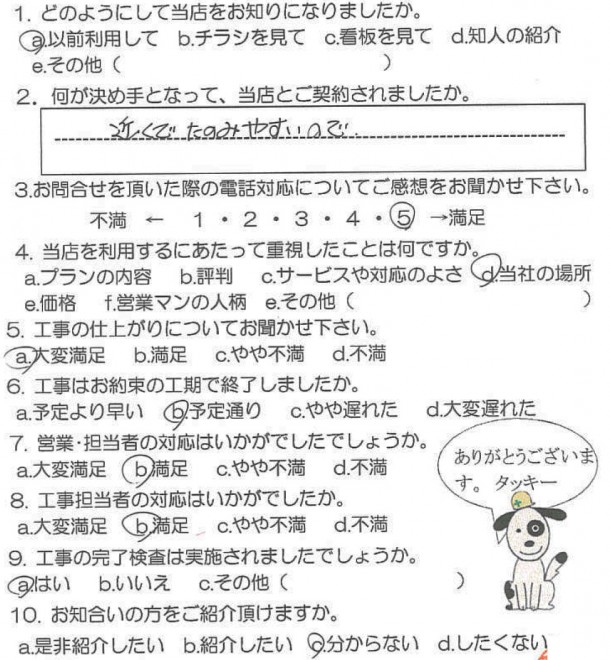 1. どのようにして当店をお知りになりましたか。
a.以前利用して b.チラシを見て c.看板を見て d.知人の紹介
e.その他（ ）
2. 何が決め手となって、当店とご契約されましたか。
近くで たのみやすいので.
3.お問合せを頂いた際の電話対応についてご感想をお聞かせ下さい。
不満 ← 1・2・3・4・5 →満足
4. 当店を利用するにあたって重視したことは何ですか。
a.プランの内容 b.評判 c.サービスや対応のよさ d.当社の場所
e.価格 f.営業マンの人柄 e.その他（ ）
5. 工事の仕上がりについてお聞かせ下さい。
a.大変満足 b.満足 c.やや不満 d.不満
6. 工事はお約束の工期で終了しましたか。
a.予定より早い b.予定通り c.やや遅れた d.大変遅れた
7. 営業・担当者の対応はいかがでしたでしょうか。
a.大変満足 b.満足 c.やや不満 d.不満
8. 工事担当者の対応はいかがでしたか。
a.大変満足 b.満足 c.やや不満 d.不満
ありがとうございま
す。 タッキー
9. 工事の完了検査は実施されましたでしょうか。
a.はい b.いいえ c.その他（ ）
10. お知合いの方をご紹介頂けますか。
a.是非紹介したい b.紹介したい c.分からない d.したくない